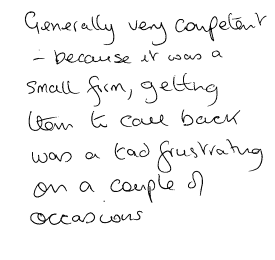 Generally very competent
- because it was a
small firm, getting
them to call back
was a tad frustrating
on a couple of
occasions